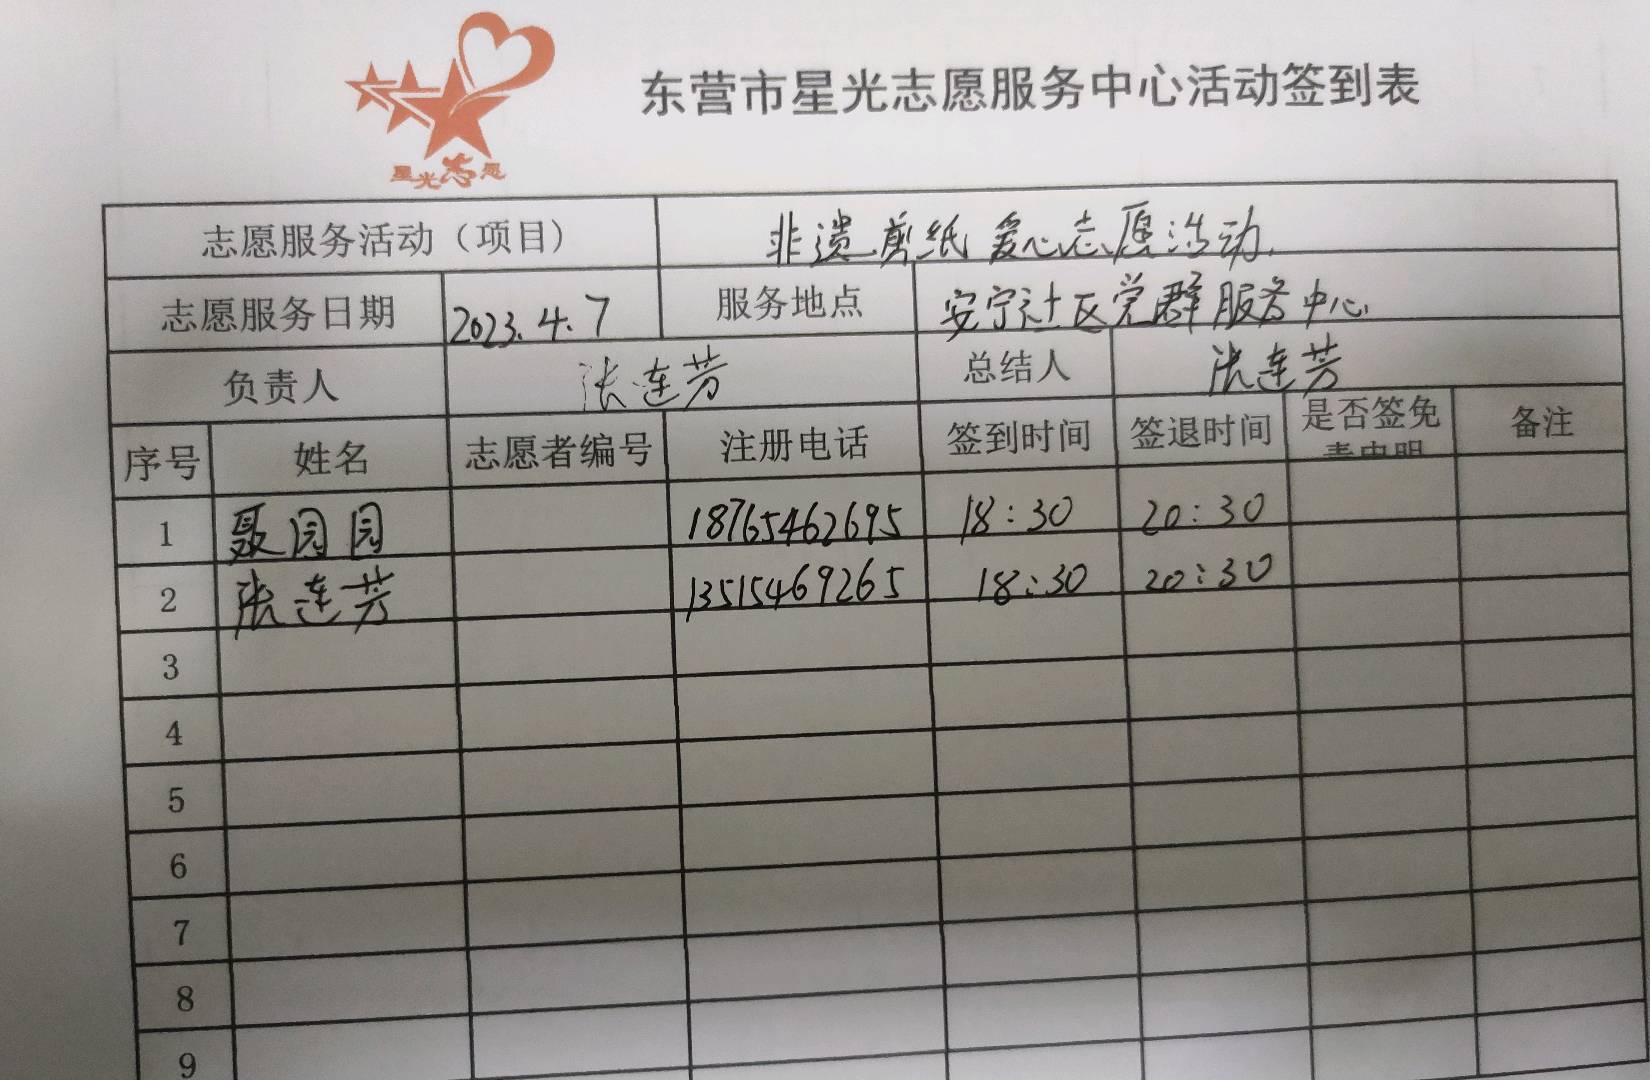 东营市星光志愿服务中心活动签到表
星光志愿
志愿服务活动（项目） 非遗剪纸爱心志愿活动
志愿服务日期 2023.4.7 服务地点 安宁社区党群服务中心
负责人 张连芳 总结人 张连芳
序号 姓名 志愿者编号 注册电话 签到时间 签退时间 是否签免 备注
责申明
1 聂园园 18765462695 18:30 20:30
2 张连芳 13515469265 18:30 20:30
3
4
5
6
7
8
9